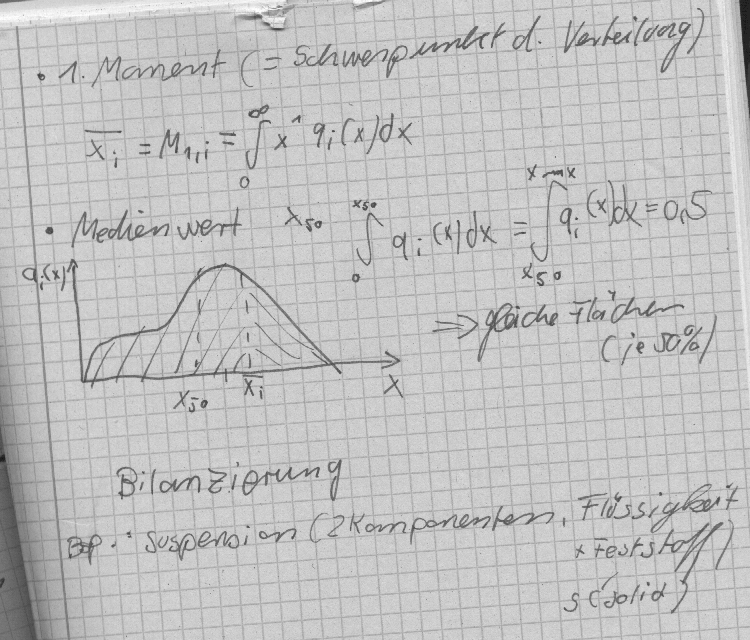 • 1. Moment (= Schwerpunkt d. Verteilung)
x̄ᵢ = M₁,ᵢ = ∫₀^∞ x¹ qᵢ(x)dx
• Medienwert x₅₀ ∫₀^x₅₀ qᵢ(x)dx = ∫x₅₀^x max qᵢ(x)dx = 0,5
qᵢ(x)
⇒ gleiche Flächen
(je 50%)
x₅₀ x̄ᵢ x
Bilanzierung
Bsp.: Suspension (2 Komponenten, Flüssigkeit
+ Feststoff)
s (solid)